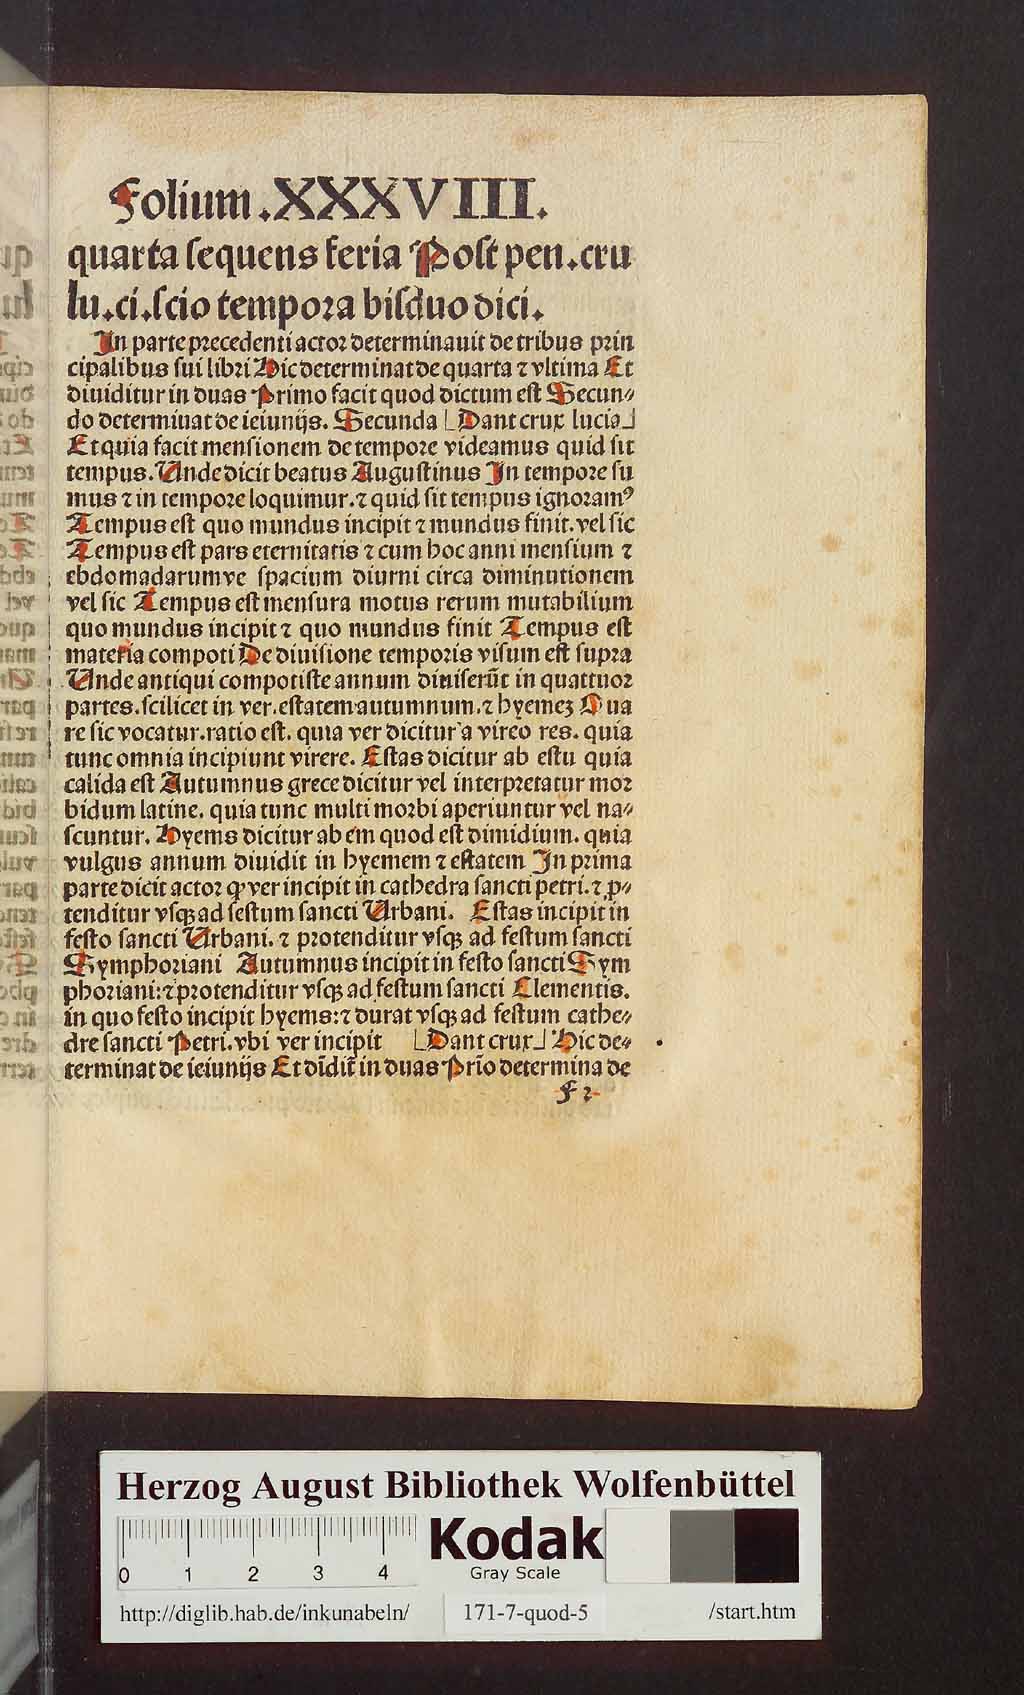 Folium .XXXVIII.
quarta sequens feria Post pen.cru
lu.ci.scio tempora bisduo dici.
In parte precedenti actor determinauit de tribus prin
cipalibus sui libri Hic determinat de quarta ⁊ vltima Et
diuiditur in duas Primo facit quod dictum est Secun⸗
do determiuat de ieiunijs. Secunda ⌊Dant crux lucia⌋
Et quia facit mensionem de tempore videamus quid sit
tempus. Unde dicit beatus Augustinus In tempore su
mus ⁊ in tempore loquimur.⁊ quid sit tempus ignoramꝰ
Tempus est quo mundus incipit ⁊ mundus finit. vel sic
Tempus est pars eternitatis ⁊ cum hoc anni mensium ⁊
ebdomadarumve spacium diurni circa diminutionem
vel sic Tempus est mensura motus rerum mutabilium
quo mundus incipit ⁊ quo mundus finit Tempus est
materia compoti De diuisione temporis visum est supra
Unde antiqui compotiste annum diuiserūt in quattuor
partes.scilicet in ver.estatem autumnum.⁊ hyemeꝫ Qua
re sic vocatur.ratio est. quia ver dicitur a vireo res. quia
tunc omnia incipiunt virere. Estas dicitur ab estu quia
calida est Autumnus grece dicitur vel interpretatur mor
bidum latine. quia tunc multi morbi aperiuntur vel na⸗
scuntur. Hyems dicitur ab em quod est dimidium. quia
vulgus annum diuidit in hyemem ⁊ estatem In prima
parte dicit actor ꝙ ver incipit in cathedra sancti petri.⁊ ꝓ⸗
tenditur vsqꝫ ad festum sancti Urbani. Estas incipit in
festo sancti Urbani. ⁊ protenditur vsqꝫ ad festum sancti
Symphoriani Autumnus incipit in festo sancti Sym
phoriani:⁊ protenditur vsqꝫ ad festum sancti Clementis.
in quo festo incipit hyems:⁊ durat vsqꝫ ad festum cathe⸗
dre sancti Petri.vbi ver incipit ⌊Dant crux⌋ Hic de⸗
terminat de ieiunijs Et dīdit̄ in duas Prīo determina de
f 2
Herzog August Bibliothek Wolfenbüttel
0 1 2 3 4
Kodak
Gray Scale
http://diglib.hab.de/inkunabeln/ 171-7-quod-5 /start.htm